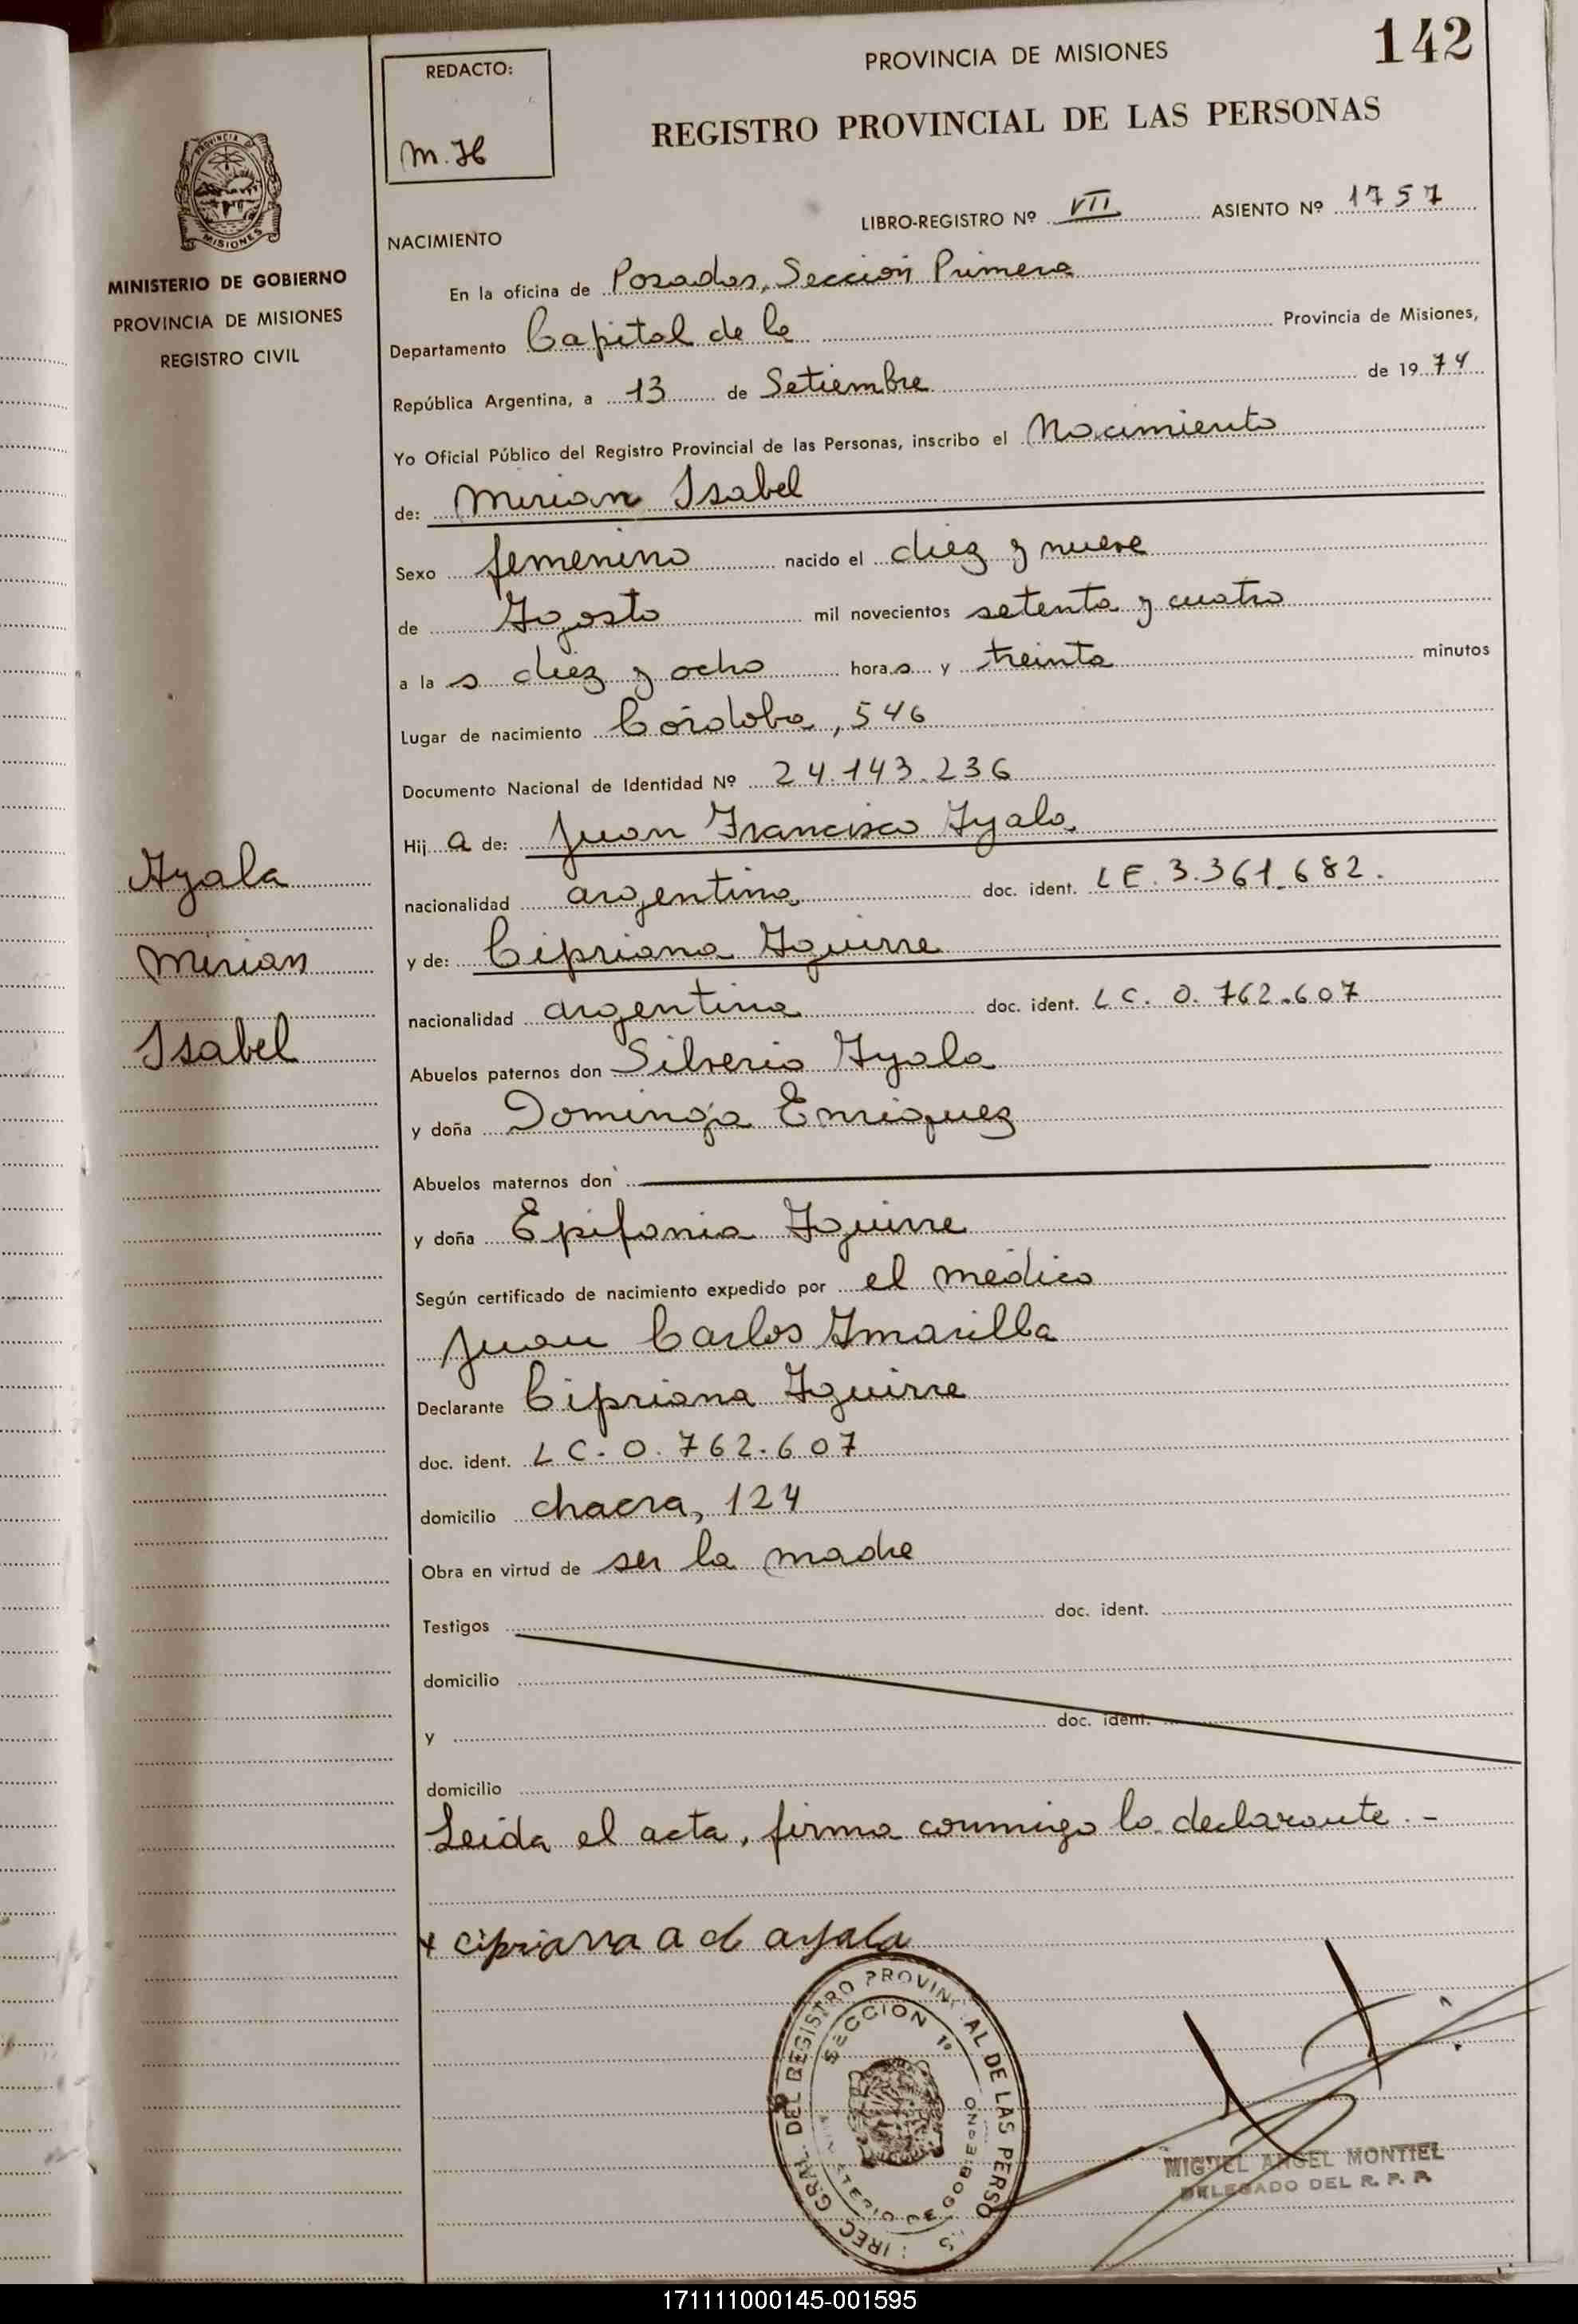 142
PROVINCIA DE MISIONES
REGISTRO PROVINCIAL DE LAS PERSONAS
REDACTO:
M. H
PROVINCIA DE
MISIONES
MINISTERIO DE GOBIERNO
PROVINCIA DE MISIONES
REGISTRO CIVIL
LIBRO-REGISTRO Nº VII ASIENTO Nº 1757
NACIMIENTO
En la oficina de Posadas, Sección Primera
Departamento Capital de la Provincia de Misiones,
República Argentina, a 13 de Setiembre de 1974
Yo Oficial Público del Registro Provincial de las Personas, inscribo el Nacimiento
de: Mirian Isabel
Sexo femenino nacido el diez y nueve
de Agosto mil novecientos setenta y cuatro
a la s diez y ocho horas y treinta minutos
Lugar de nacimiento Córdoba, 546
Documento Nacional de Identidad Nº 24.143.236
Hij a de: Juan Francisco Ayala
nacionalidad argentina doc. ident. LE. 3.361.682.
y de: Cipriana Aguirre
nacionalidad argentina doc. ident. LC. 0.762.607
Abuelos paternos don Silverio Ayala
y doña Dominga Enriquez
Abuelos maternos don
y doña Epifania Aguirre
Según certificado de nacimiento expedido por el médico
Juan Carlos Amarilla
Declarante Cipriana Aguirre
doc. ident. LC. 0.762.607
domicilio chacra, 124
Obra en virtud de ser la madre
Testigos doc. ident.
domicilio
y doc. ident.
domicilio
Leida el acta, firma conmigo la declarante.-
Ayala
Mirian
Isabel
x cipriana a d ayala
GRAL. DEL REGISTRO PROVINCIAL DE LAS PERSO
SECCION 1º
MINISTERIO DE GOBIERNO
MIGUEL ANGEL MONTIEL
DELEGADO DEL R. P. P.
171111000145-001595